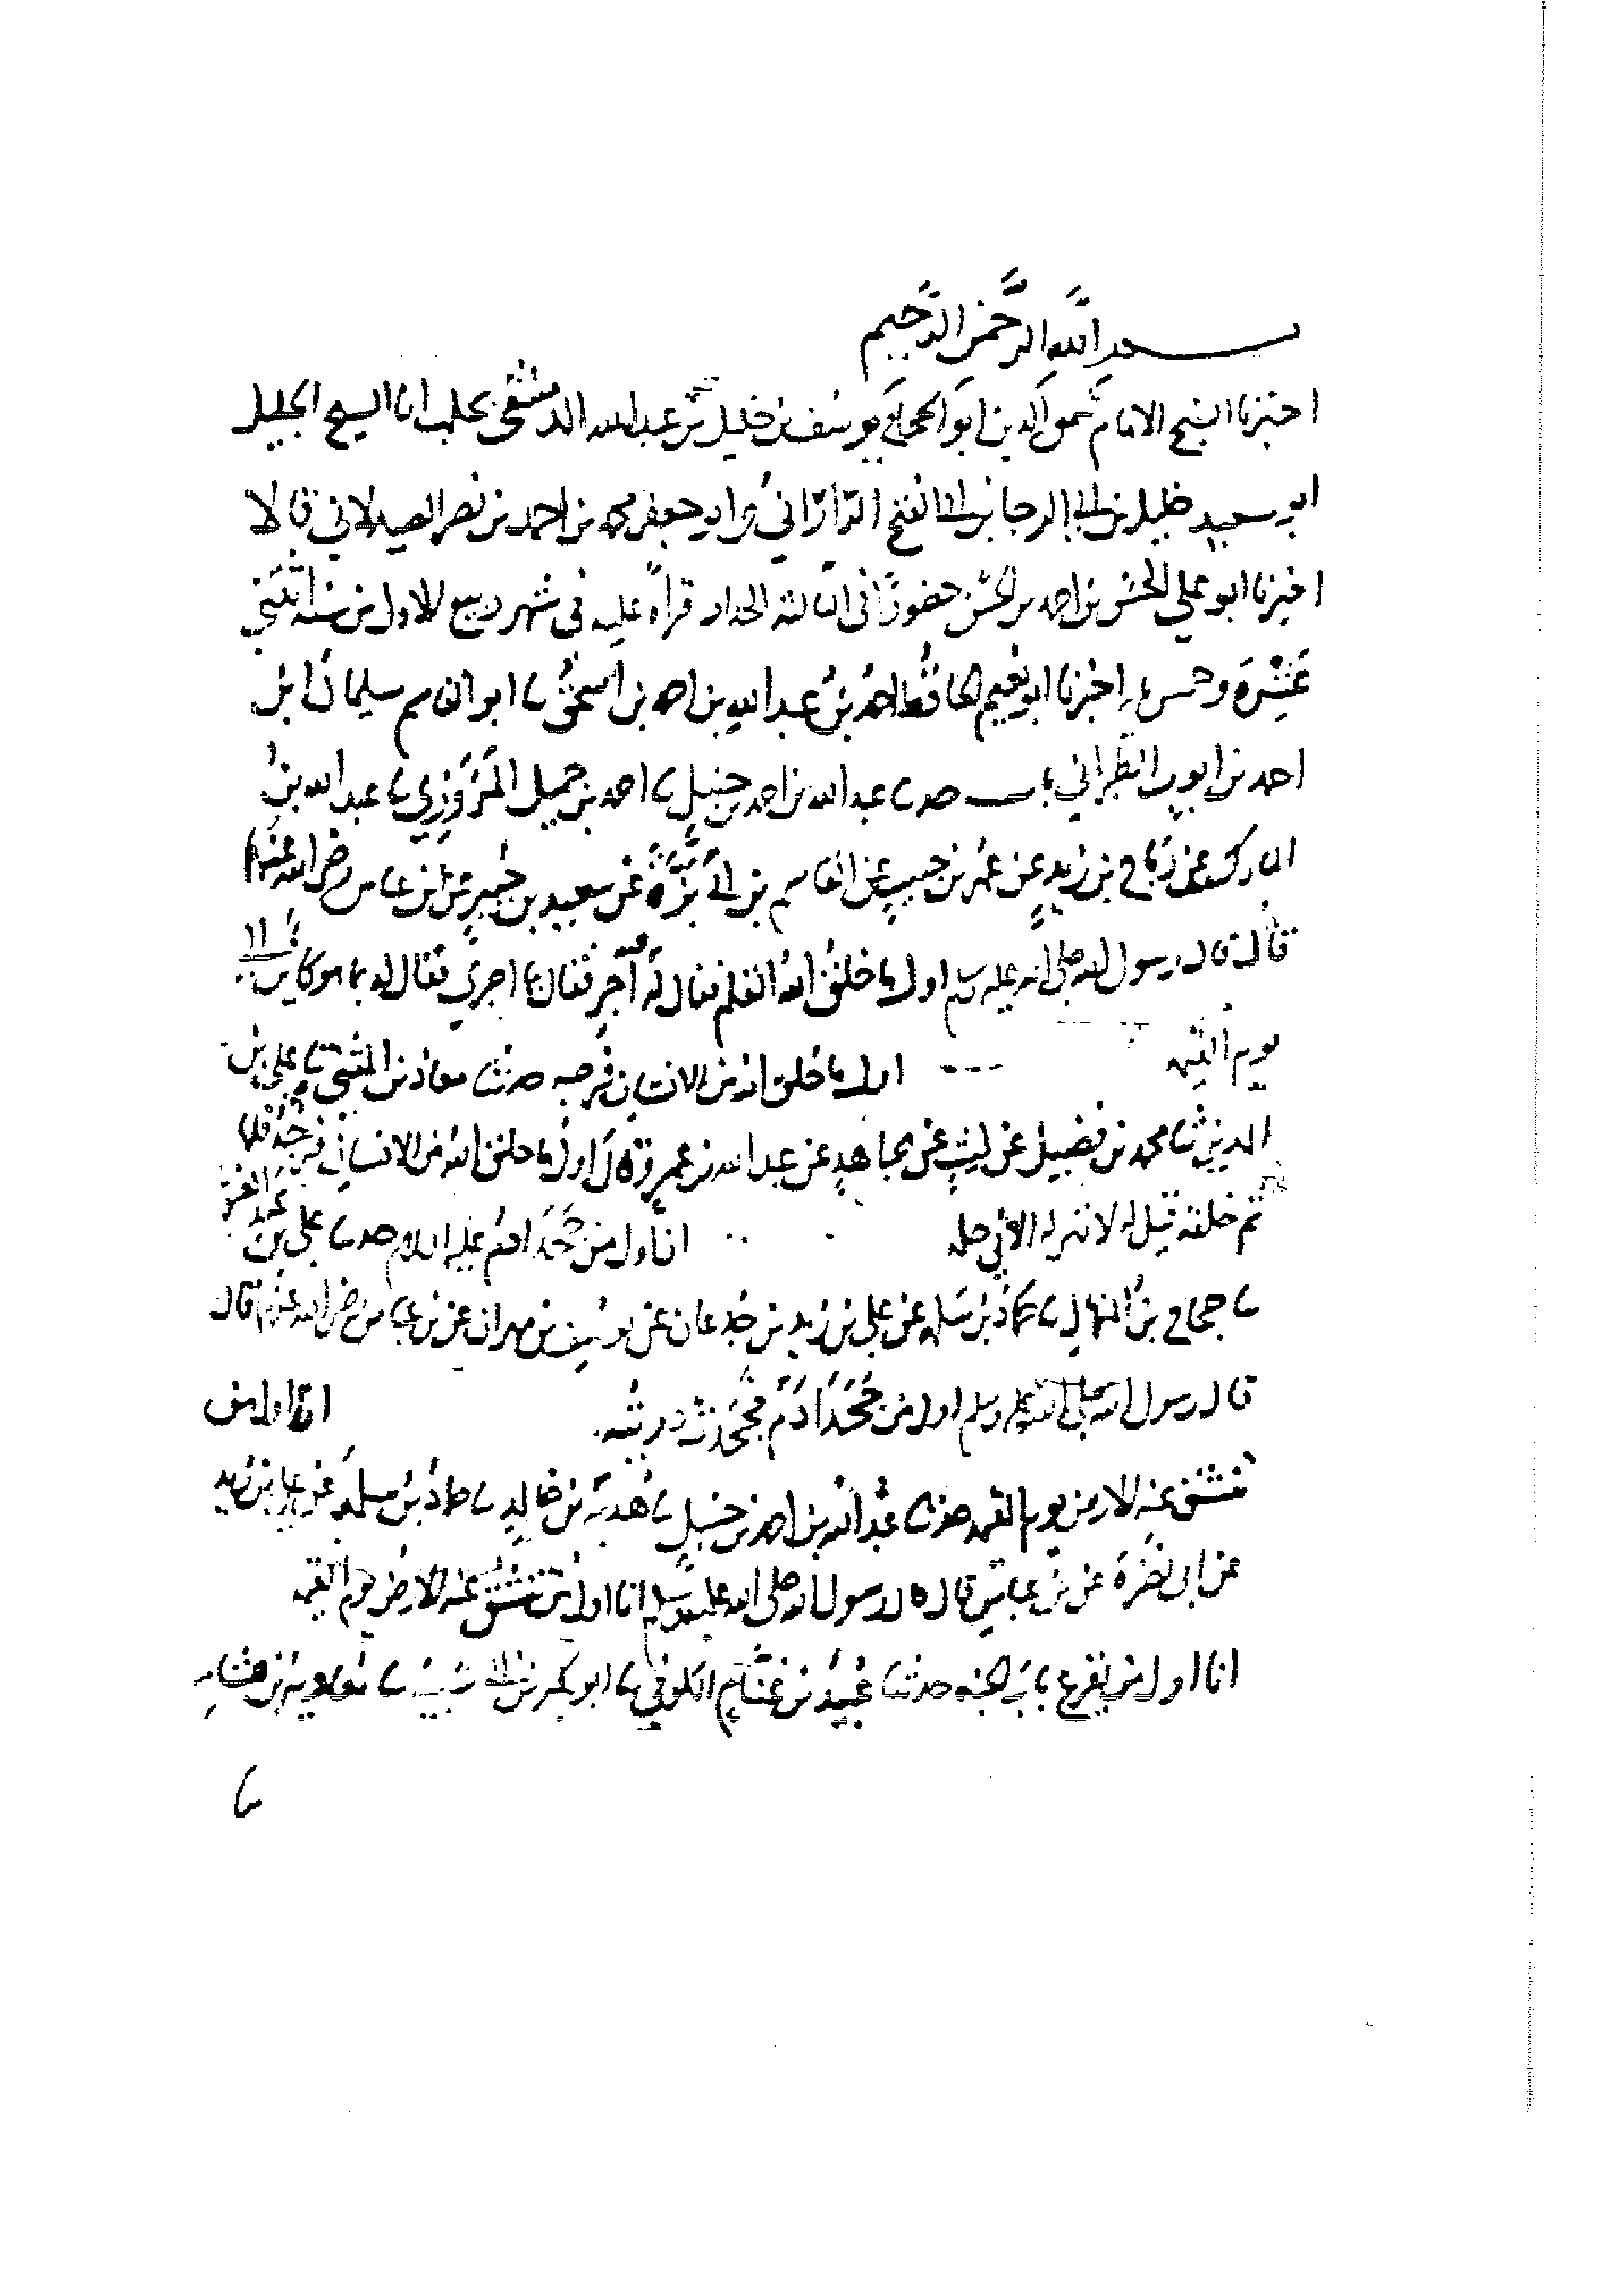 بسم الله الرحمن الرحيم
اخبرنا الشيخ الامام شمس الدين ابو الحجاج يوسف بن خليل بن عبد الله الدمشقي بحلب انا الشيخ الجليل
ابو سعيد خليل بن ابي الرجا بن ابي الفتح الرّارَاني وابو جعفر محمد بن احمد بن نصر الصيدلاني قالا
اخبرنا ابو علي الحسن بن احمد بن الحسن حضورًا في الثالثة الحداد قراءة عليه في شهر ربيع الاول من سنة اثنتي
عَشْرَة وخمس مايه اخبرنا ابو نعيم الحافظ احمد بن عبد الله بن احمد بن اسحق نا ابو القاسم سليمان ابن
احمد بن ايوب الطبراني حدثنا عبد الله بن احمد بن حنبل نا احمد بن جميل المَرْوَزِي نا عبد الله بن
المبارك عن رَبَاح بن زيد عن عمر بن حبيب عن القاسم بن ابي بَزَّة عن سعيد بن جبير عن ابن عباس رضي الله عنهما
قال قال رسول الله صلى الله عليه وسلم اول ما خلق الله القلم فقال له آجرِ فقال بما اجري فقال له بما هو كاين الى
يوم القيمه اول ما خلق الله من الانسان فرجه حدثنا معاذ بن المثنى نا علي بن
المديني نا محمد بن فضيل عن ليث عن مجاهد عن عبد الله بن عمرو قال اول ما خلق الله من الانسان فرجه فلما
تم خلقه قيل له لا تنزله الا في حله انّ اول من جَحَدَ ادم عليه السلام حدثنا علي بن عبد العزيز
نا حجاج بن المنهال نا حماد بن سلمه عن علي بن زيد بن جدعان عن يوسف بن مهران عن ابن عباس رضي الله عنهما قال
قال رسول الله صلى الله عليه وسلم اول من جَحَدَ ادَم فجَحَدَت ذريته انا اول من
تنشق عنه الارض يوم القيمه حدثنا عبد الله بن احمد بن حنبل نا هدبة بن خالد نا حماد بن سلمه عن علي بن زيد
عن ابي نضرَة عن ابن عباس قال قال رسول الله صلى الله عليه وسلم انا اول من تنشق عنه الارض يوم القيمه
انا اول من يقرع باب الجنه حدثنا عُبيد بن غنَّام الكوفي نا ابو بكر بن ابي شيبة نا معاوية بن هشام
نا